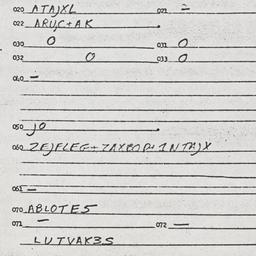 020 ATAJXL 021 =
022 ARUC+AK .
030 O 031 O
032 O 033 O
040 –
050 JO .
060 ZEJFLEG+ZAXBOP+1NTAJX
061 –
070 ABLOTE5
071 – 072 –
LUTVAK3S